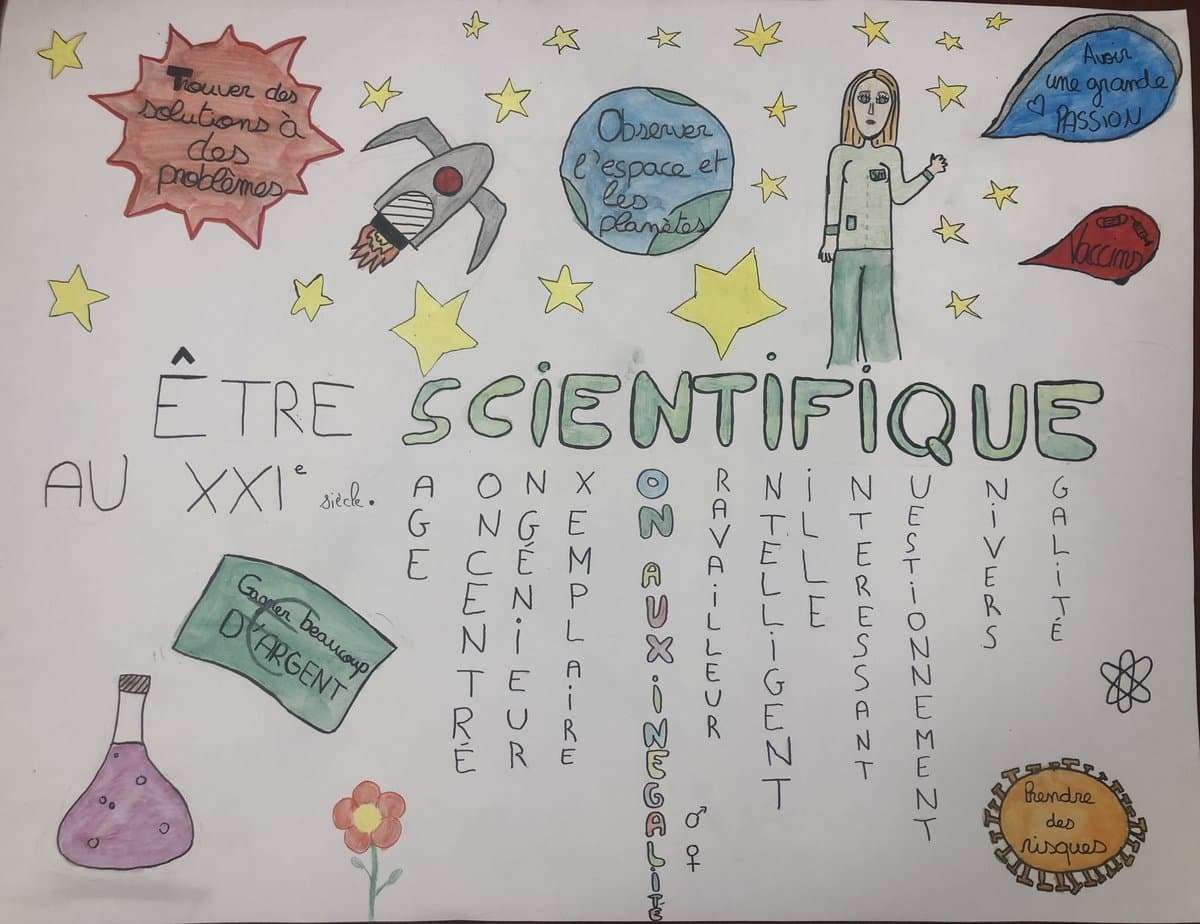 Trouver des
solutions à
des
problèmes
Observer
l'espace et
les
planètes
Avoir
une grande
PASSION
Vaccins
ÊTRE SCiENTiFiQUE
AU XXIe siècle.
AGE
ONCENTRÉ
NGÉNiEUR
XEMPLAiRE
ON AUX iNEGALiTE
RAVAiLLEUR
NTELLiGENT
iLLE
NTERESSANT
UESTiONNEMENT
NiVERS
GALiTÉ
Gagner beaucoup
D'ARGENT
♂
♀
Prendre
des
risques